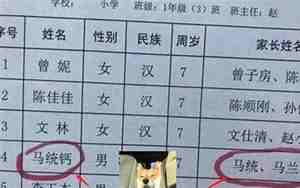 学校： 小学 班级：1年级（3）班 班主任：赵
序号 姓名 性别 民族 周岁 家长姓名
1 曾妮 女 汉 7 曾子房、陈
2 陈佳佳 女 汉 7 陈顺刚、孙
3 文林 女 汉 7 文仕清、赵
4 马统钙 男 7 马统、马兰